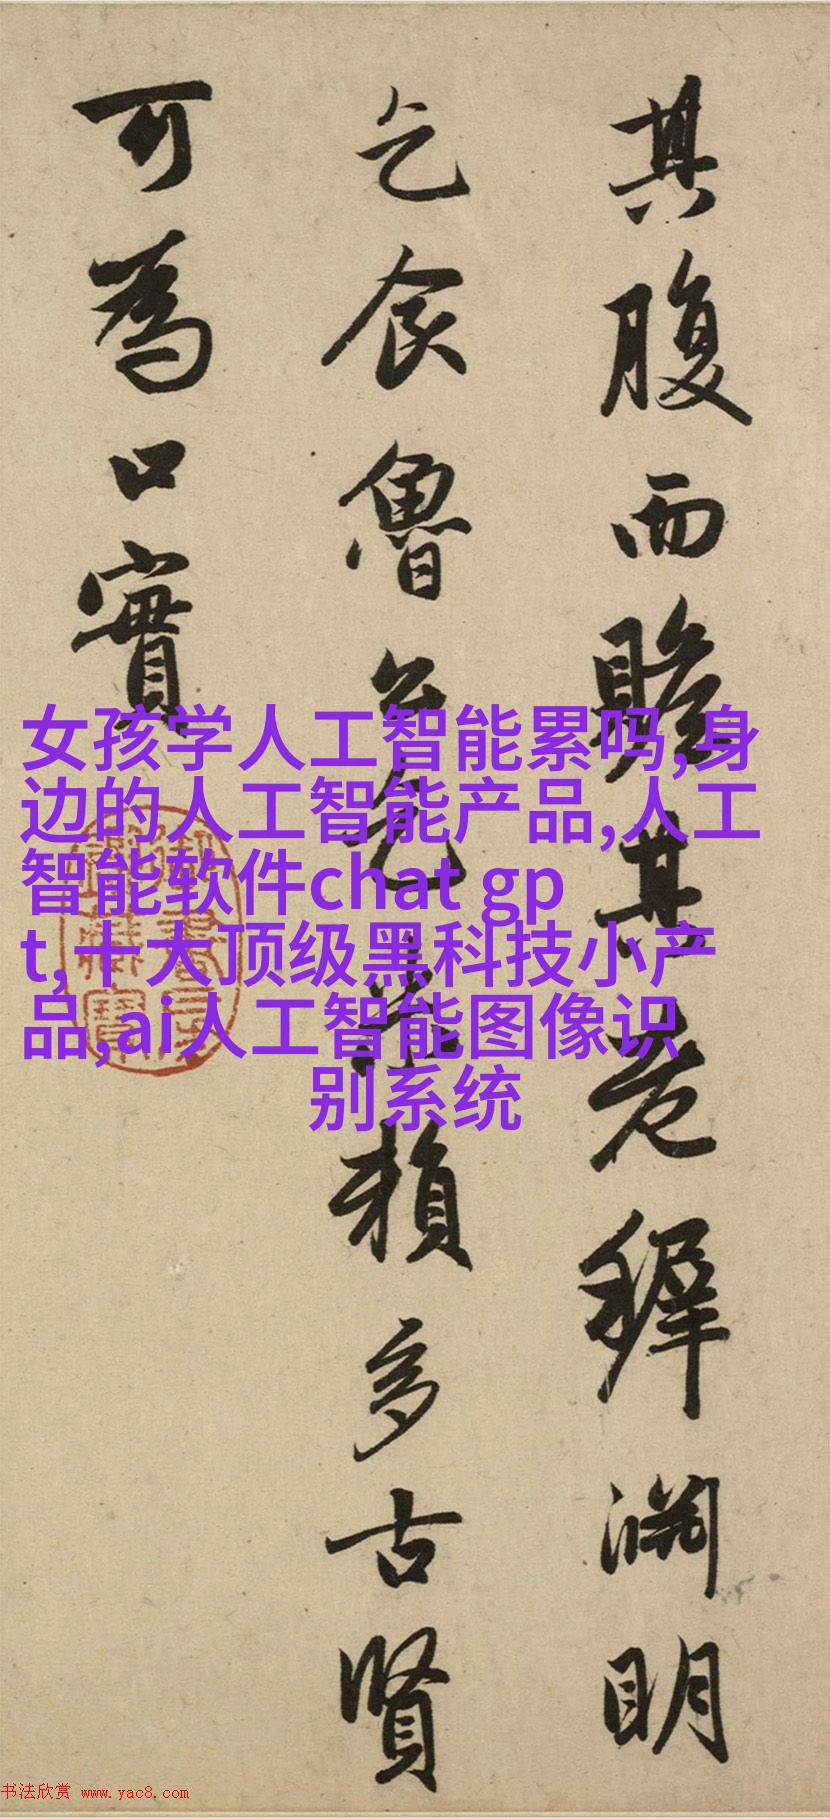 其腹而贍其老穉渊明
乞食魯公乞米賴多古賢
可為口實
女孩学人工智能累吗,身
边的人工智能产品,人工
智能软件chat gp
t,十大顶级黑科技小产
品,ai人工智能图像识
别系统
书法欣赏 www.yac8.com